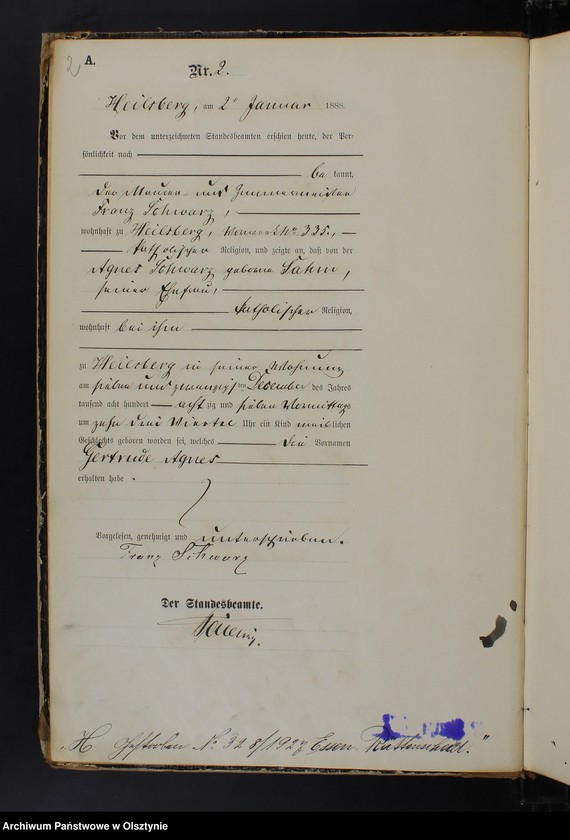 2
A.
Nr. 2.
Heilsberg, am 2ⁿ Januar 1888.
Vor dem unterzeichneten Standesbeamten erschien heute, der Per-
sönlichkeit nach
be kannt,
der Maurer- und Zimmermeister
Franz Schwarz,
wohnhaft zu Heilsberg, Nº 335.,
katholischer Religion, und zeigte an, daß von der
Agnes Schwarz geborne
seiner Ehefrau,
katholischer Religion,
wohnhaft bei ihm
zu Heilsberg in seiner Wohnung
am sieben und zwanzigsten December des Jahres
tausend acht hundert acht zig und sieben Vormittags
um zehn drei Viertel Uhr ein Kind weiblichen
Geschlechts geboren worden sei, welches die Vornamen
Gertrude Agnes
erhalten habe.
Vorgelesen, genehmigt und unterschrieben.
Franz Schwarz
Der Standesbeamte.
"H Gestorben Nº 328/1927 Essen "
Archiwum Państwowe w Olsztynie